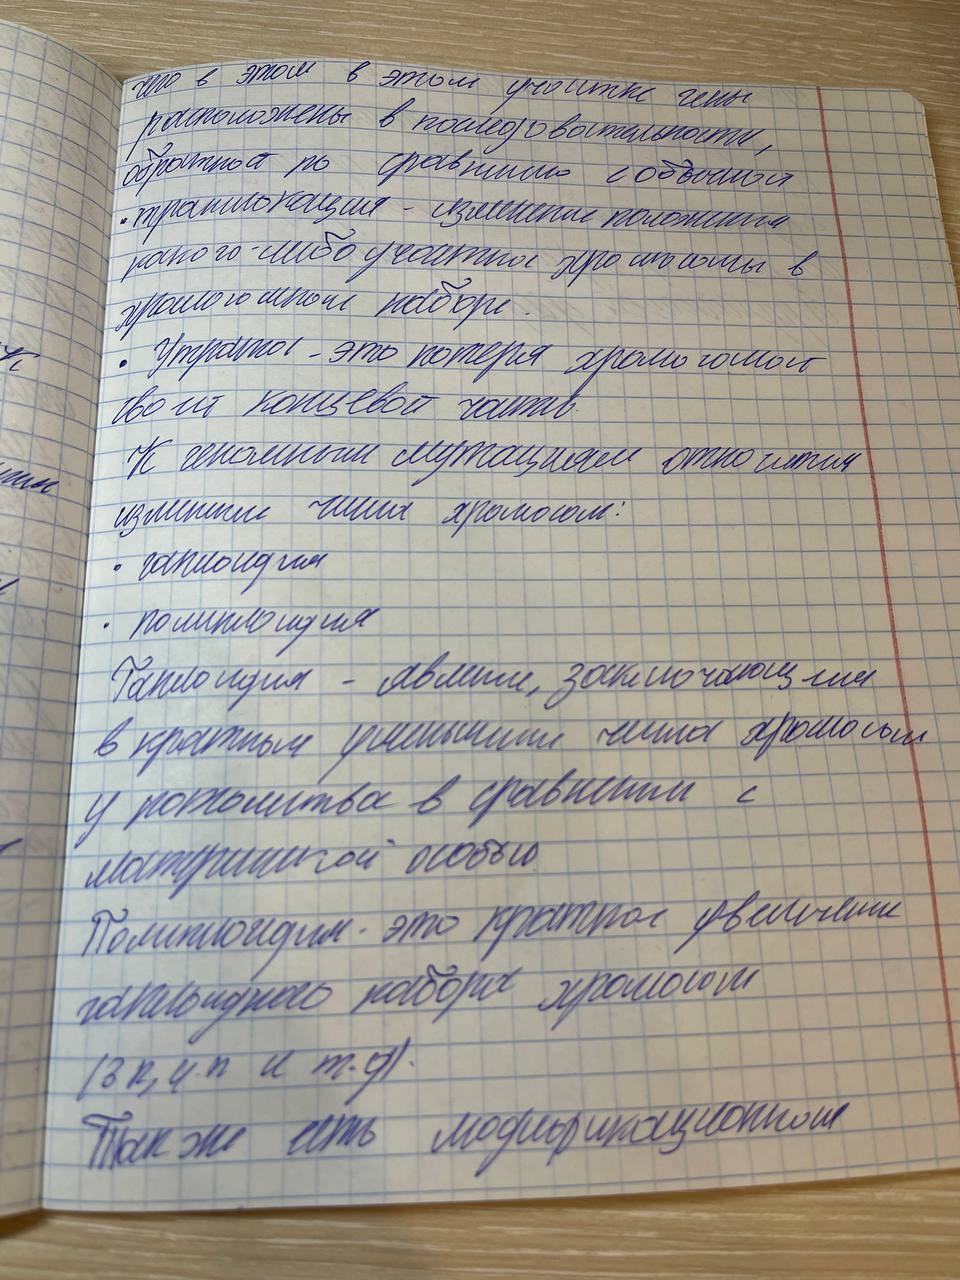 что в этом в этом участке гены
расположены в последовательности,
обратной по сравнению с обычной
• транслокация - изменение положения
какого-либо участка хромосомы в
хромосомном наборе.
• Утрата - это потеря хромосомой
своей концевой части.
К геномным мутациям относится
изменение числа хромосом:
• гаплоидия
• полиплоидия
Гаплоидия - явление, заключающееся
в кратном уменьшении числа хромосом
у потомства в сравнении с
материнской особью
Полиплоидия - это кратное увеличение
гаплоидного набора хромосом
(3n, 4n и т.д).
Также есть модификационная